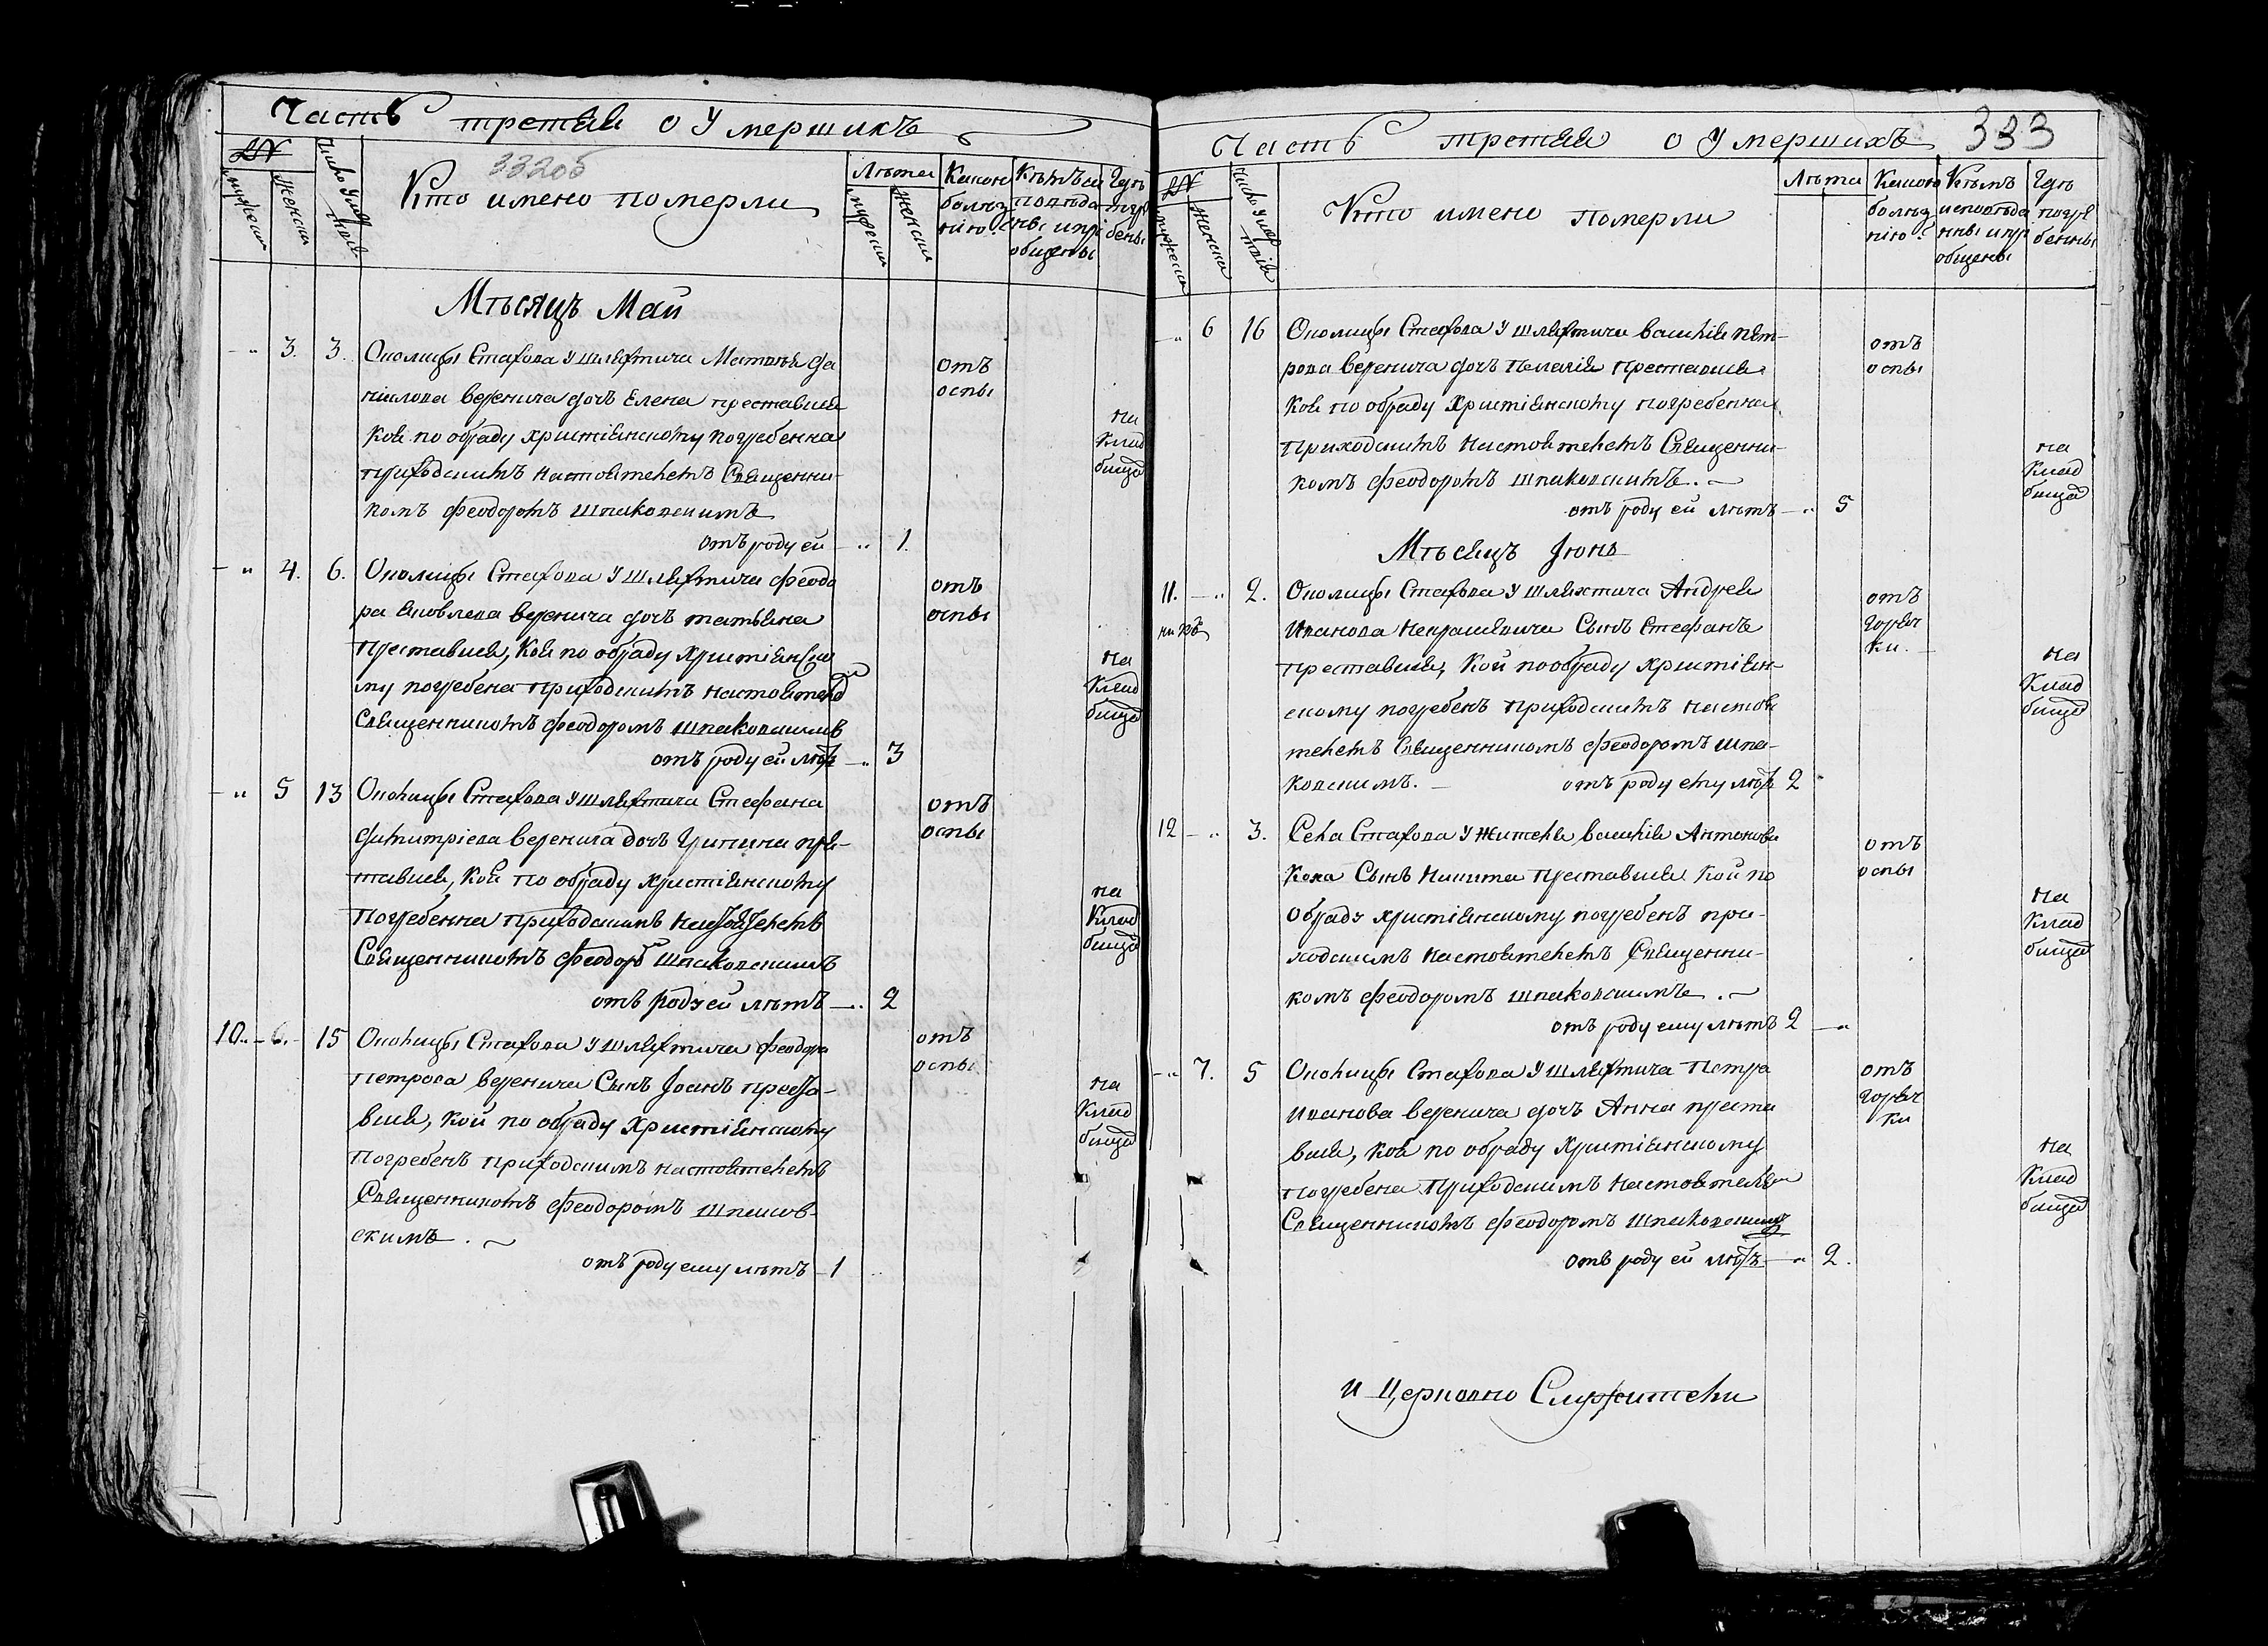 Часть третяя о Умершихъ
332об
№
мужеска
женска
Число Умертвія
Кто имено померли
Лѣта
мужеска
женска
Какою
болѣз
нію?
Кѣмъ ис
повѣда
ны и прі
общены
Гдѣ
погр
бены
Мѣсяцъ Май
3. 3. Околицы Стахова У шляхтича Матвѣя Да
ніилова Веренича дочъ Елена преставися
Коя по обряду христіянскому погребенна
приходскимъ настоятелемъ Священни-
комъ Феодоромъ Шпаковскимъ
отъ роду ей 1.
отъ
оспы
на
Клад
бищѣ
4. 6. Околицы Стахова У шляхтича Феодо
ра Яковлева Веренича дочъ татьяна
Преставися, Коя по обряду христіянско
му погребена приходскимъ настоятелем
Священникомъ Феодоромъ Шпаковскимъ
отъ роду ей лѣтъ 3
отъ
оспы
на
Клад
бищѣ
5 13 Околицы Стахова У шляхтича Стефана
Димитріева Веренича дочъ Гликина пре-
тавися, Коя по обряду христіянскому
Погребенна приходскимъ настоятелемъ
Священникомъ Феодоро Шпаковскимъ
отъ роду ей лѣтъ 2
отъ
оспы
на
Клад
бищѣ
10. 6. 15 Околицы Стахова У шляхтича Феодора
Петрова Веренича Сынъ Іоанъ преста-
вися, кой по обряду Христіянскому
Погребенъ приходскимъ настоятелемъ
Священникомъ Феодоромъ Шпаков-
скимъ.
отъ роду ему лѣтъ 1
отъ
оспы
на
Клад
бищѣ
Часть третяя о Умершихъ 333
№
мужеска
женска
Число Умер
твія
Кто имено померли
Лѣта
Какою
болѣз
нію?
Кѣмъ
исповѣда
нны и пр
общены
Гдѣ
погре
бенны
6 16 Околицы Стахова У шляхтича Василія Пет-
рова Веренича дочъ Пелагія Преставися
Коя по обряду Христіянскому погребенна
Приходскимъ Настоятелемъ Священни-
комъ Феодоромъ Шпаковскимъ.
отъ роду ей лѣтъ 5
отъ
оспы
на
Клад
бищѣ
Мѣсяцъ Іюнь
11. 2. Околицы Стахова У шляхтича Андрея
Иванова Некрашевича Сынъ Стефанъ
преставися, Кой по обряду христіян-
скому погребенъ приходскимъ настоя
телемъ Священникомъ Феодоромъ Шпа-
ковскимъ. отъ роду ему лѣтъ 2
отъ
горяч
ки.
на
Клад
бищѣ
12 3. Села Стахова У жителя Василія Антонова
Кока Сынъ Никита преставися Кой по
Обряду христіянскому погребенъ при-
ходскимъ настоятелемъ Священни-
комъ Феодоромъ Шпаковскимъ.
отъ роду ему лѣтъ 2
отъ
оспы
на
Клад
бищѣ
7. 5 Околицы Стахова У шляхтича Петра
Иванова Веренича дочъ Анна преста
вися, коя по обряду Христіянскому
погребена Приходскимъ Настоятелем
Священникомъ Феодоромъ Шпаковскимъ
отъ роду ей лѣтъ 2.
отъ
горяч
ки
на
Клад
бищѣ
и Церковно Служители